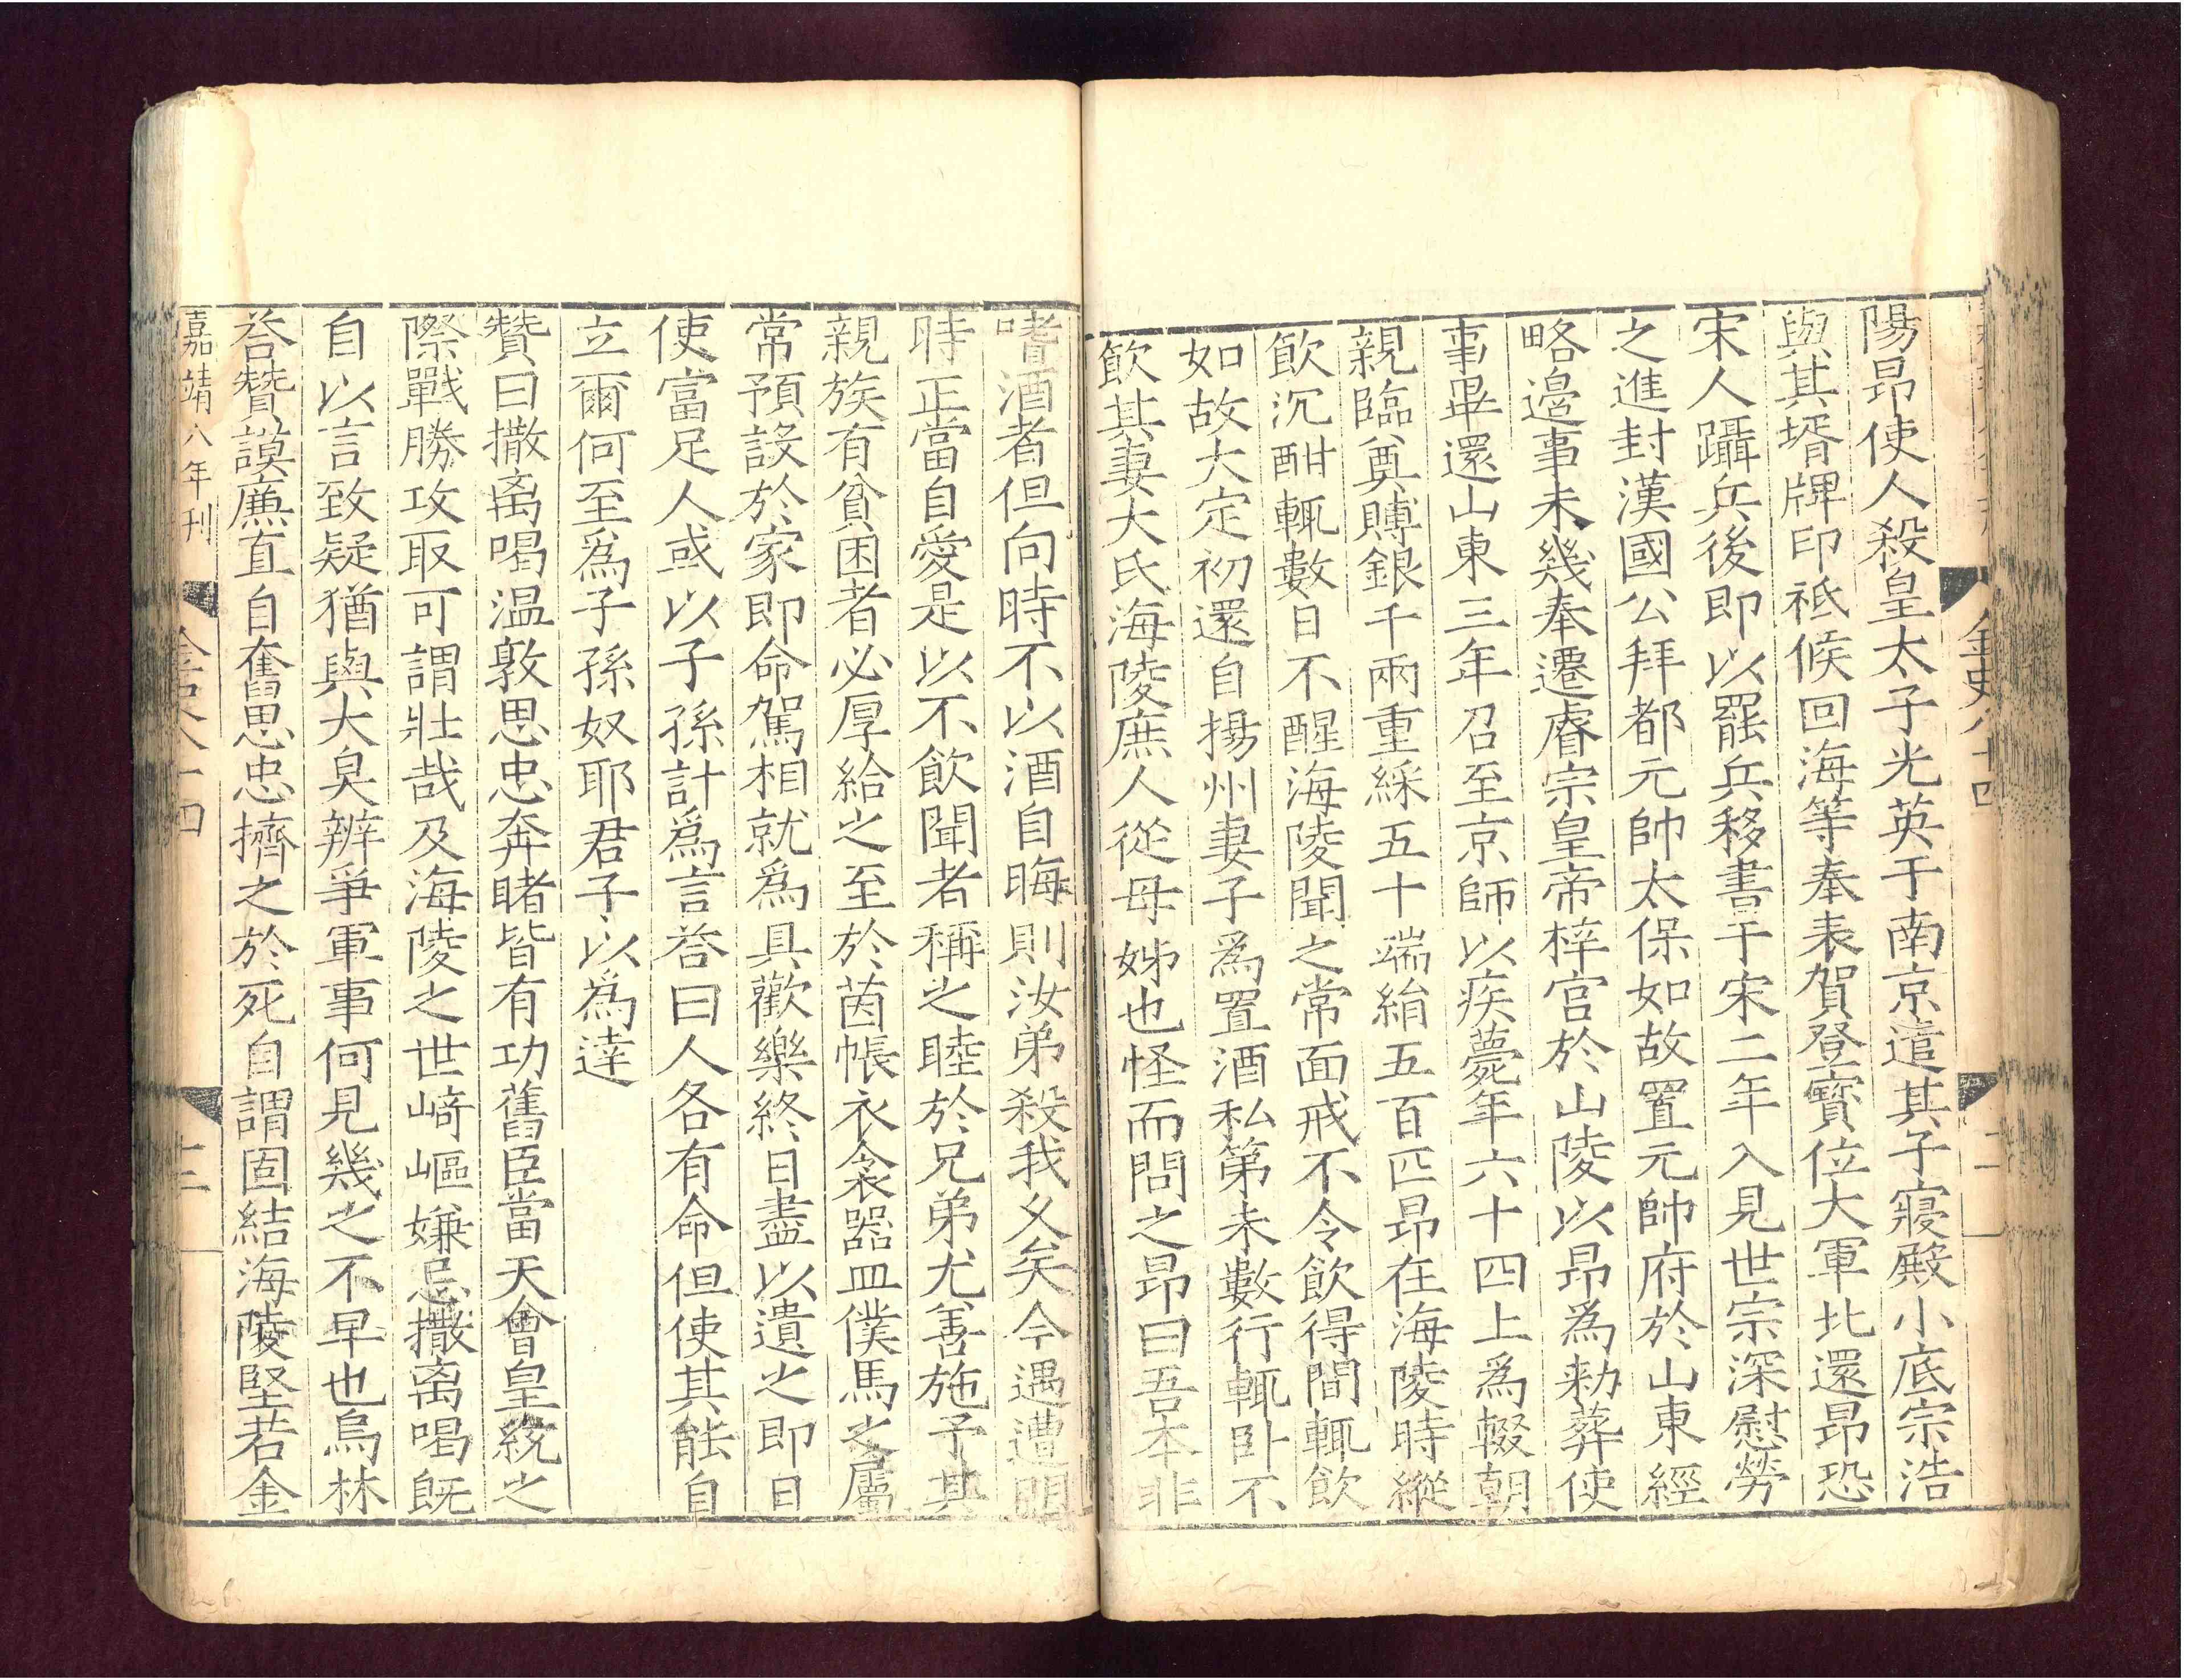 陽昂使人殺皇太子光英于南京遣其子寢殿小底宗浩
與其壻牌印祗候回海等奉表賀登寳位大軍北還昂恐
宋人躡兵後即以罷兵移書于宋二年入見世宗深慰勞
之進封漢國公拜都元帥太保如故置元帥府於山東經
略邉事未幾奉遷睿宗皇帝梓宫於山陵以昂爲勑葬使
事畢還山東三年召至京師以疾薨年六十四上爲輟朝
親臨奠賻銀千兩重綵五十端絹五百匹昂在海陵時縱
飲沉酣輒數日不醒海陵聞之常面戒不令飲得間輒飲
如故大定初還自揚州妻子爲置酒私第未數行輒卧不
飲其妻大氏海陵庶人從母姊也怪而問之昂曰吾本非
嗜酒者但向時不以酒自晦則汝弟殺我乆矣今遇遭明
時正當自愛是以不飲聞者稱之睦於兄弟尤善施予其
親族有貧困者必厚給之至於茵帳衣衾器皿僕馬之屬
常預設於家即命駕相就爲具歡樂終日盡以遺之即日
使富足人或以子孫計爲言荅曰人各有命但使其能自
立爾何至爲子孫奴耶君子以爲達
贊曰撒离喝温敦思忠奔睹皆有功舊臣當天會皇統之
際戰勝攻取可謂壯哉及海陵之世崎嶇嫌忌撒离喝既
自以言致疑猶與大臭辨爭軍事何見幾之不早也烏林
荅贊謨廉直自奮思忠擠之於死自謂固結海陵堅若金
嘉靖八年刊
金史八十四